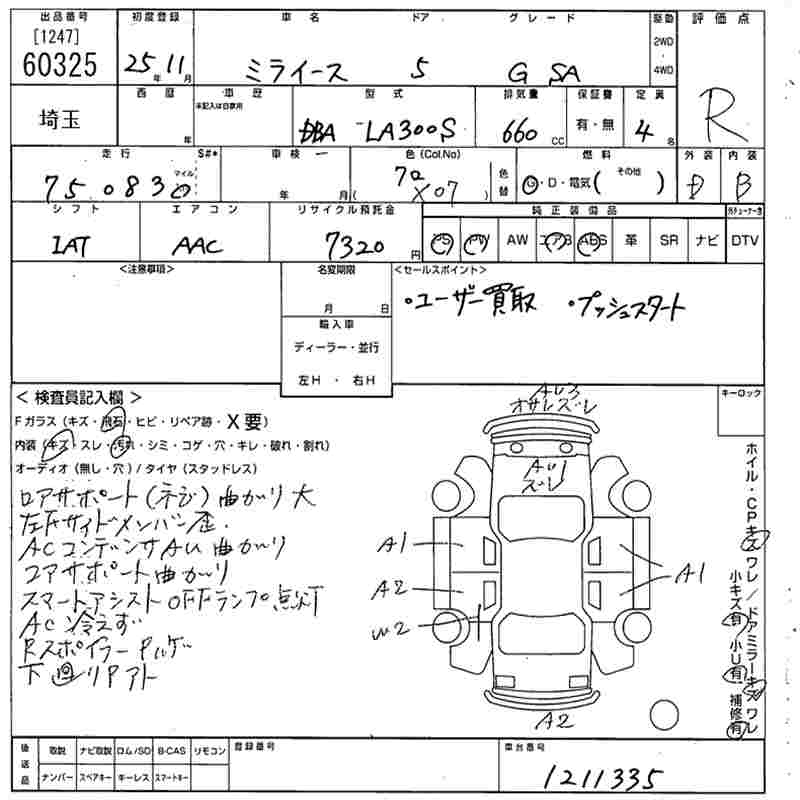 出品番号 初度登録 車名 ドア グレード 駆動 評価点
[1247] 60325 25年11月 ミライース 5 G SA 2WD・4WD R
西暦 年 車歴 未記入は自家用 型式 排気量 保証書 定員
埼玉 DBA LA300S 660cc 有・無 4名
走行 S#* 車検 色(Col.No) 燃料 外装 内装
75,083 マイル 年 月 ( X07 ) 色替 G・D・電気( その他 ) D B
シフト エアコン リサイクル預託金 純正装備品
IAT AAC 7320円 PS PW AW エアB ABS 革 SR ナビ DTV
<注意事項> 名変期限 <セールスポイント>
月 日 ・ユーザー買取 ・プッシュスタート
輸入車
ディーラー・並行
左H ・ 右H
< 検査員記入欄 > キーロック
Fガラス(キズ・飛石・ヒビ・リペア跡・X要)
内装(キズ・スレ・汚れ・シミ・コゲ・穴・キレ・破れ・割れ)
オーディオ(無し・穴)/タイヤ(スタッドレス)
ロアサポート(ネジ)曲がり大
左Fサイドメンバー歪
ACコンデンサAU曲がり
コアサポート曲がり
スマートアシストOFFランプ点灯
AC冷えず
Rスポイラー
下回リ
オサレズレ
AU1
ズレ
A1
A2
W2
A1
A2
ホイル・CPキズ ワレ/ドアミラーキズ ワレ
小キズ有 小U有 補修有
後送品 取説 ナビ取説 ロム/SD B-CAS リモコン 登録番号 車台番号
ナンバー スペアキー キーレス スマートキー 1211335